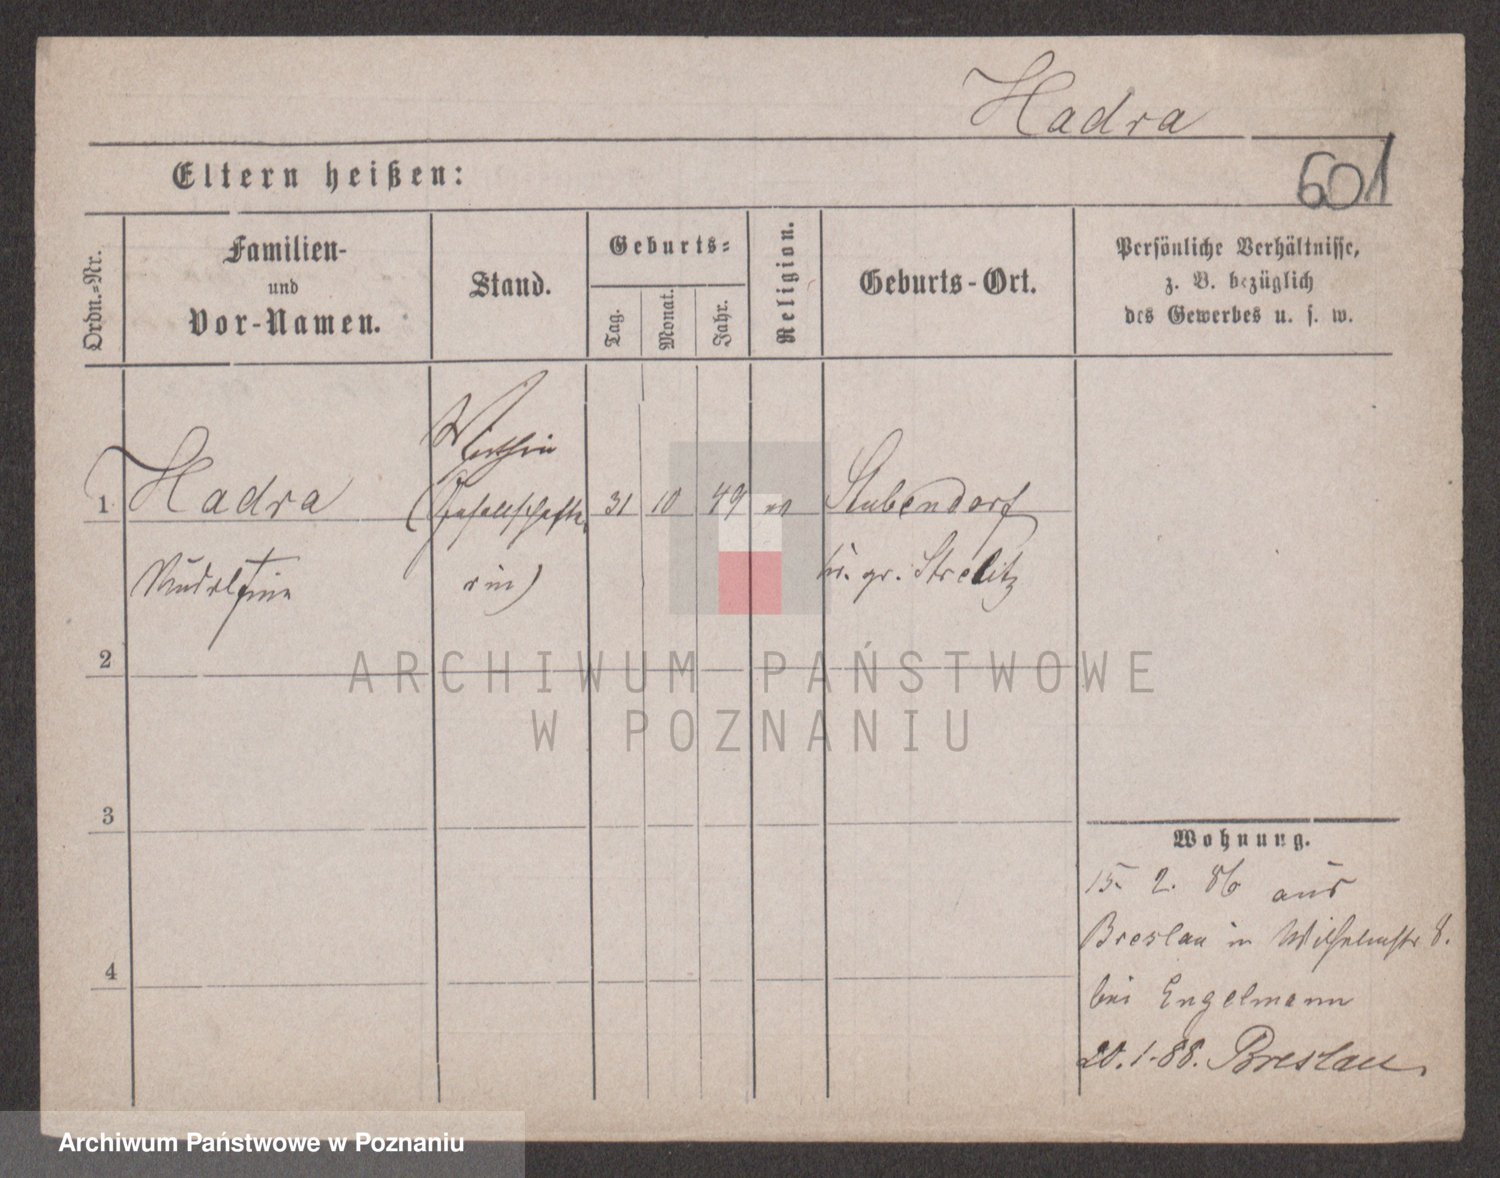 Hadra
601
Eltern heißen:
Ordn.-Nr.
Familien-
und
Vor-Namen.
Stand.
Geburts-
Tag.
Monat.
Jahr.
Religion.
Geburts-Ort.
Persönliche Verhältnisse,
z. B. bezüglich
des Gewerbes u. s. w.
1
Hadra
Wirthin
(Gesellschafte
31
10
49
Stubendorf
Rudolfine
rin)
kr. gr. Strelitz
2
3
4
Wohnung.
15. 2. 86 aus
Breslau in Wilhelmstr 8.
bei Engelmann
20. 1. 88. Breslau.
ARCHIWUM PAŃSTWOWE
W POZNANIU
Archiwum Państwowe w Poznaniu